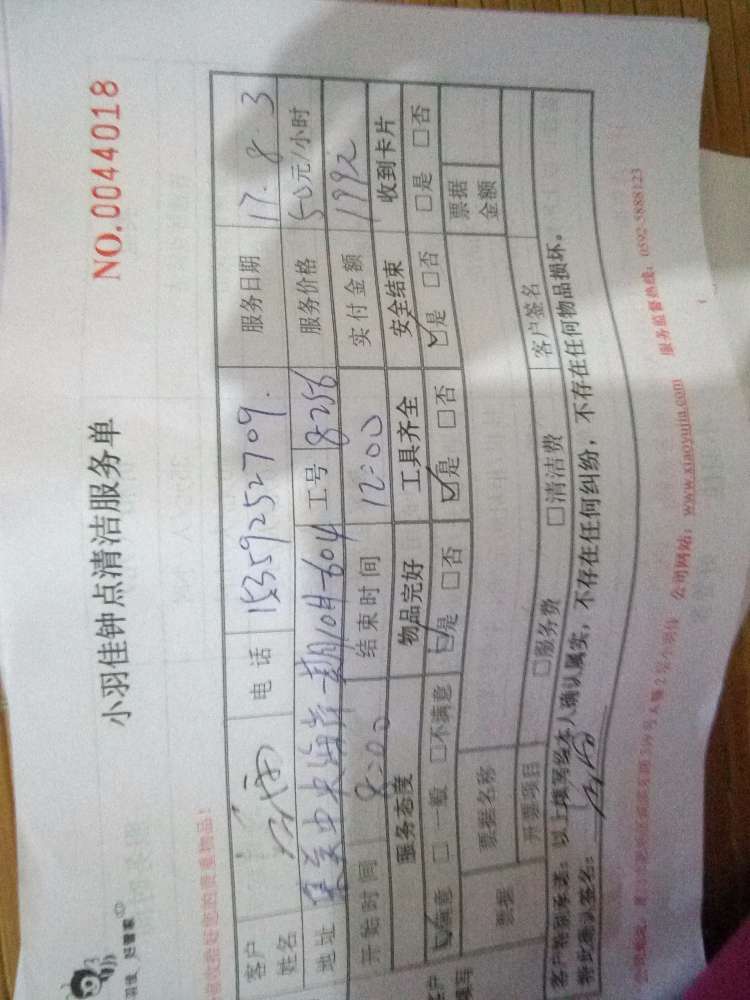 好管家
小羽佳钟点清洁服务单
NO.0044018
您的贵重物品!
客户姓名 电话 15359252709. 服务日期 17.8.3
地址 集美中央海岸一期10#-604 工号 8256 服务价格 50元/小时
开始时间 8:00 结束时间 12:00 实付金额 1992
服务态度 物品完好 工具齐全 安全结束 收到卡片
☑满意 □一般 □不满意 ☑是 □否 ☑是 □否 ☑是 □否 □是 □否
票据 票据名称 票据金额
开票项目 □服务费 □清洁费 客户签名
客户特别承诺:以上填写经本人确认属实,不存在任何纠纷,不存在任何物品损坏。
特此确认签名:
公司网站:www.xiaoyujia.com 服务监督热线:0592-5888123